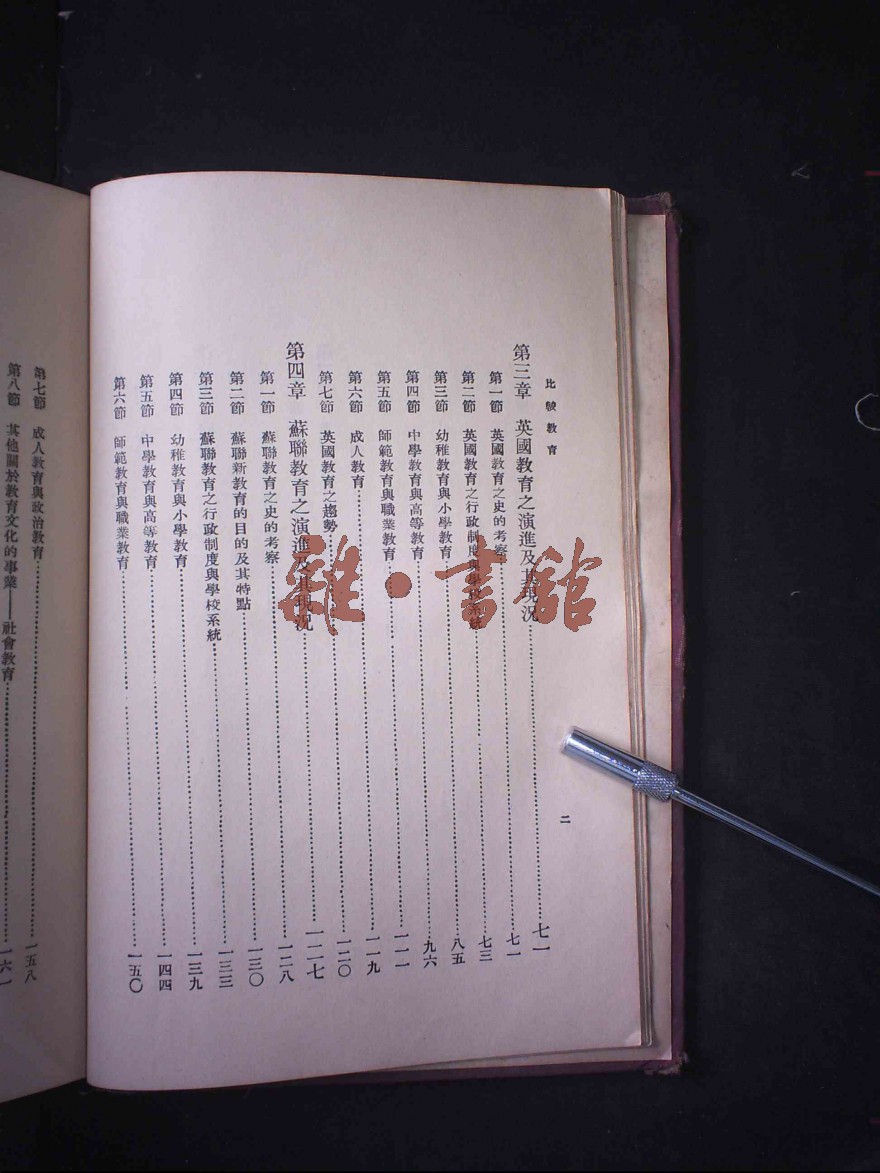 比較教育
二
第三章 英國教育之演進及其現況……七一
第一節 英國教育之史的考察……七一
第二節 英國教育之行政制度與學校系統……七三
第三節 幼稚教育與小學教育……八五
第四節 中學教育與高等教育……九六
第五節 師範教育與職業教育……一一一
第六節 成人教育……一一九
第七節 英國教育之趨勢……一二〇
第四章 蘇聯教育之演進及其現況……一二七
第一節 蘇聯教育之史的考察……一二八
第二節 蘇聯新教育的目的及其特點……一三〇
第三節 蘇聯教育之行政制度與學校系統……一三三
第四節 幼稚教育與小學教育……一三九
第五節 中學教育與高等教育……一四四
第六節 師範教育與職業教育……一五〇
第七節 成人教育與政治教育……一五八
第八節 其他關於教育文化的事業——社會教育……一六一
雜·書館